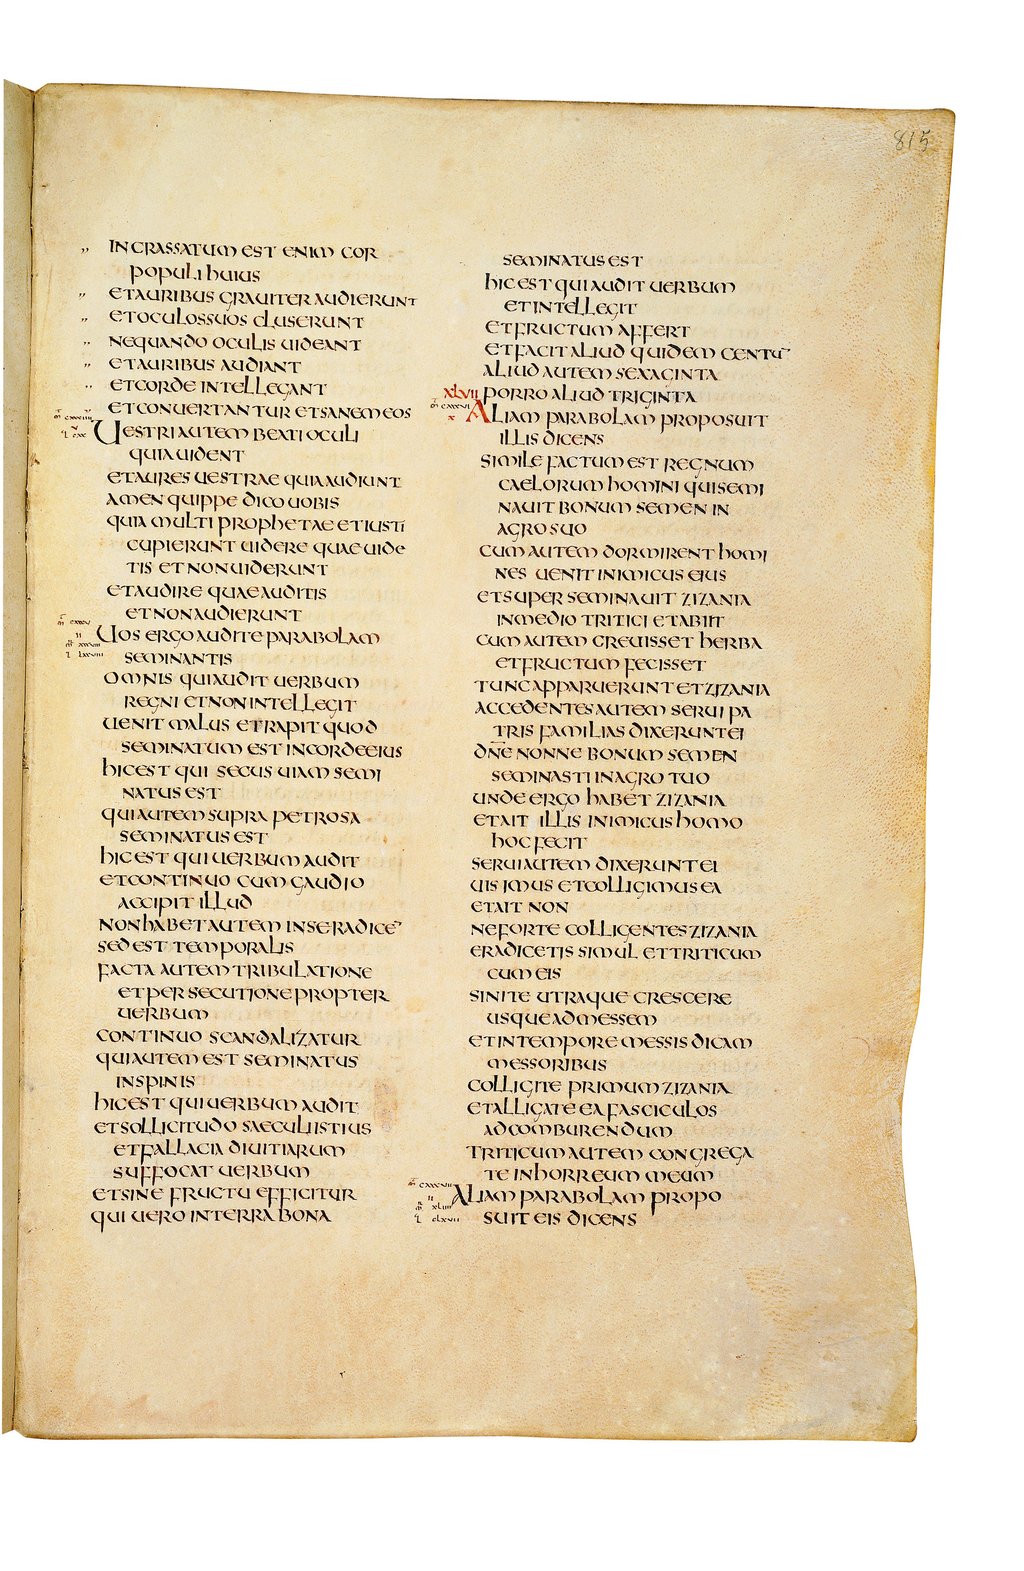 815
INCRASSATUM EST ENIM COR
POPULI HUIUS
ETAURIBUS GRAUITER AUDIERUNT
ETOCULOSSUOS CLUSERUNT
NEQUANDO OCULIS UIDEANT
ETAURIBUS AUDIANT
ETCORDE INTELLEGANT
ETCONUERTANTUR ETSANEMEOS
UESTRI AUTEM BEATI OCULI
QUIA UIDENT
ETAURES UESTRAE QUIA AUDIUNT
AMEN QUIPPE DICO UOBIS
QUIA MULTI PROPHETAE ET IUSTI
CUPIERUNT UIDERE QUAE UIDE
TIS ET NON UIDERUNT
ETAUDIRE QUAE AUDITIS
ETNONAUDIERUNT
UOS ERGO AUDITE PARABOLAM
SEMINANTIS
OMNIS QUI AUDIT UERBUM
REGNI ET NON INTELLEGIT
UENIT MALUS ET RAPIT QUOD
SEMINATUM EST INCORDE EIUS
HIC EST QUI SECUS UIAM SEMI
NATUS EST
QUI AUTEM SUPRA PETROSA
SEMINATUS EST
HIC EST QUI UERBUM AUDIT
ETCONTINUO CUM GAUDIO
ACCIPIT ILLUD
NON HABET AUTEM IN SE RADICE¯
SED EST TEMPORALIS
FACTA AUTEM TRIBULATIONE
ETPERSECUTIONE PROPTER
UERBUM
CONTINUO SCANDALIZATUR
QUI AUTEM EST SEMINATUS
INSPINIS
HIC EST QUI UERBUM AUDIT
ETSOLLICITUDO SAECULI ISTIUS
ETFALLACIA DIUITIARUM
SUFFOCAT UERBUM
ETSINE FRUCTU EFFICITUR
QUI UERO INTERRA BONA
SEMINATUS EST
HIC EST QUI AUDIT UERBUM
ETINTELLEGIT
ETFRUCTUM AFFERT
ETFACIT ALIUD QUIDEM CENTU¯
ALIUD AUTEM SEXAGINTA
XLVII PORRO ALIUD TRIGINTA
ALIAM PARABOLAM PROPOSUIT
ILLIS DICENS
SIMILE FACTUM EST REGNUM
CAELORUM HOMINI QUI SEMI
NAUIT BONUM SEMEN IN
AGRO SUO
CUM AUTEM DORMIRENT HOMI
NES UENIT INIMICUS EIUS
ETSUPER SEMINAUIT ZIZANIA
INMEDIO TRITICI ET ABIIT
CUM AUTEM CREUISSET HERBA
ETFRUCTUM FECISSET
TUNC APPARUERUNT ET ZIZANIA
ACCEDENTES AUTEM SERUI PA
TRIS FAMILIAS DIXERUNT EI
DN̄E NONNE BONUM SEMEN
SEMINASTI IN AGRO TUO
UNDE ERGO HABET ZIZANIA
ETAIT ILLIS INIMICUS HOMO
HOC FECIT
SERUI AUTEM DIXERUNT EI
UIS IMUS ET COLLIGIMUS EA
ETAIT NON
NEFORTE COLLIGENTES ZIZANIA
ERADICETIS SIMUL ET TRITICUM
CUM EIS
SINITE UTRAQUE CRESCERE
USQUE AD MESSEM
ETINTEMPORE MESSIS DICAM
MESSORIBUS
COLLIGITE PRIMUM ZIZANIA
ETALLIGATE EA FASCICULOS
AD COMBURENDUM
TRITICUM AUTEM CONGREGA
TE IN HORREUM MEUM
ALIAM PARABOLAM PROPO
SUIT EIS DICENS